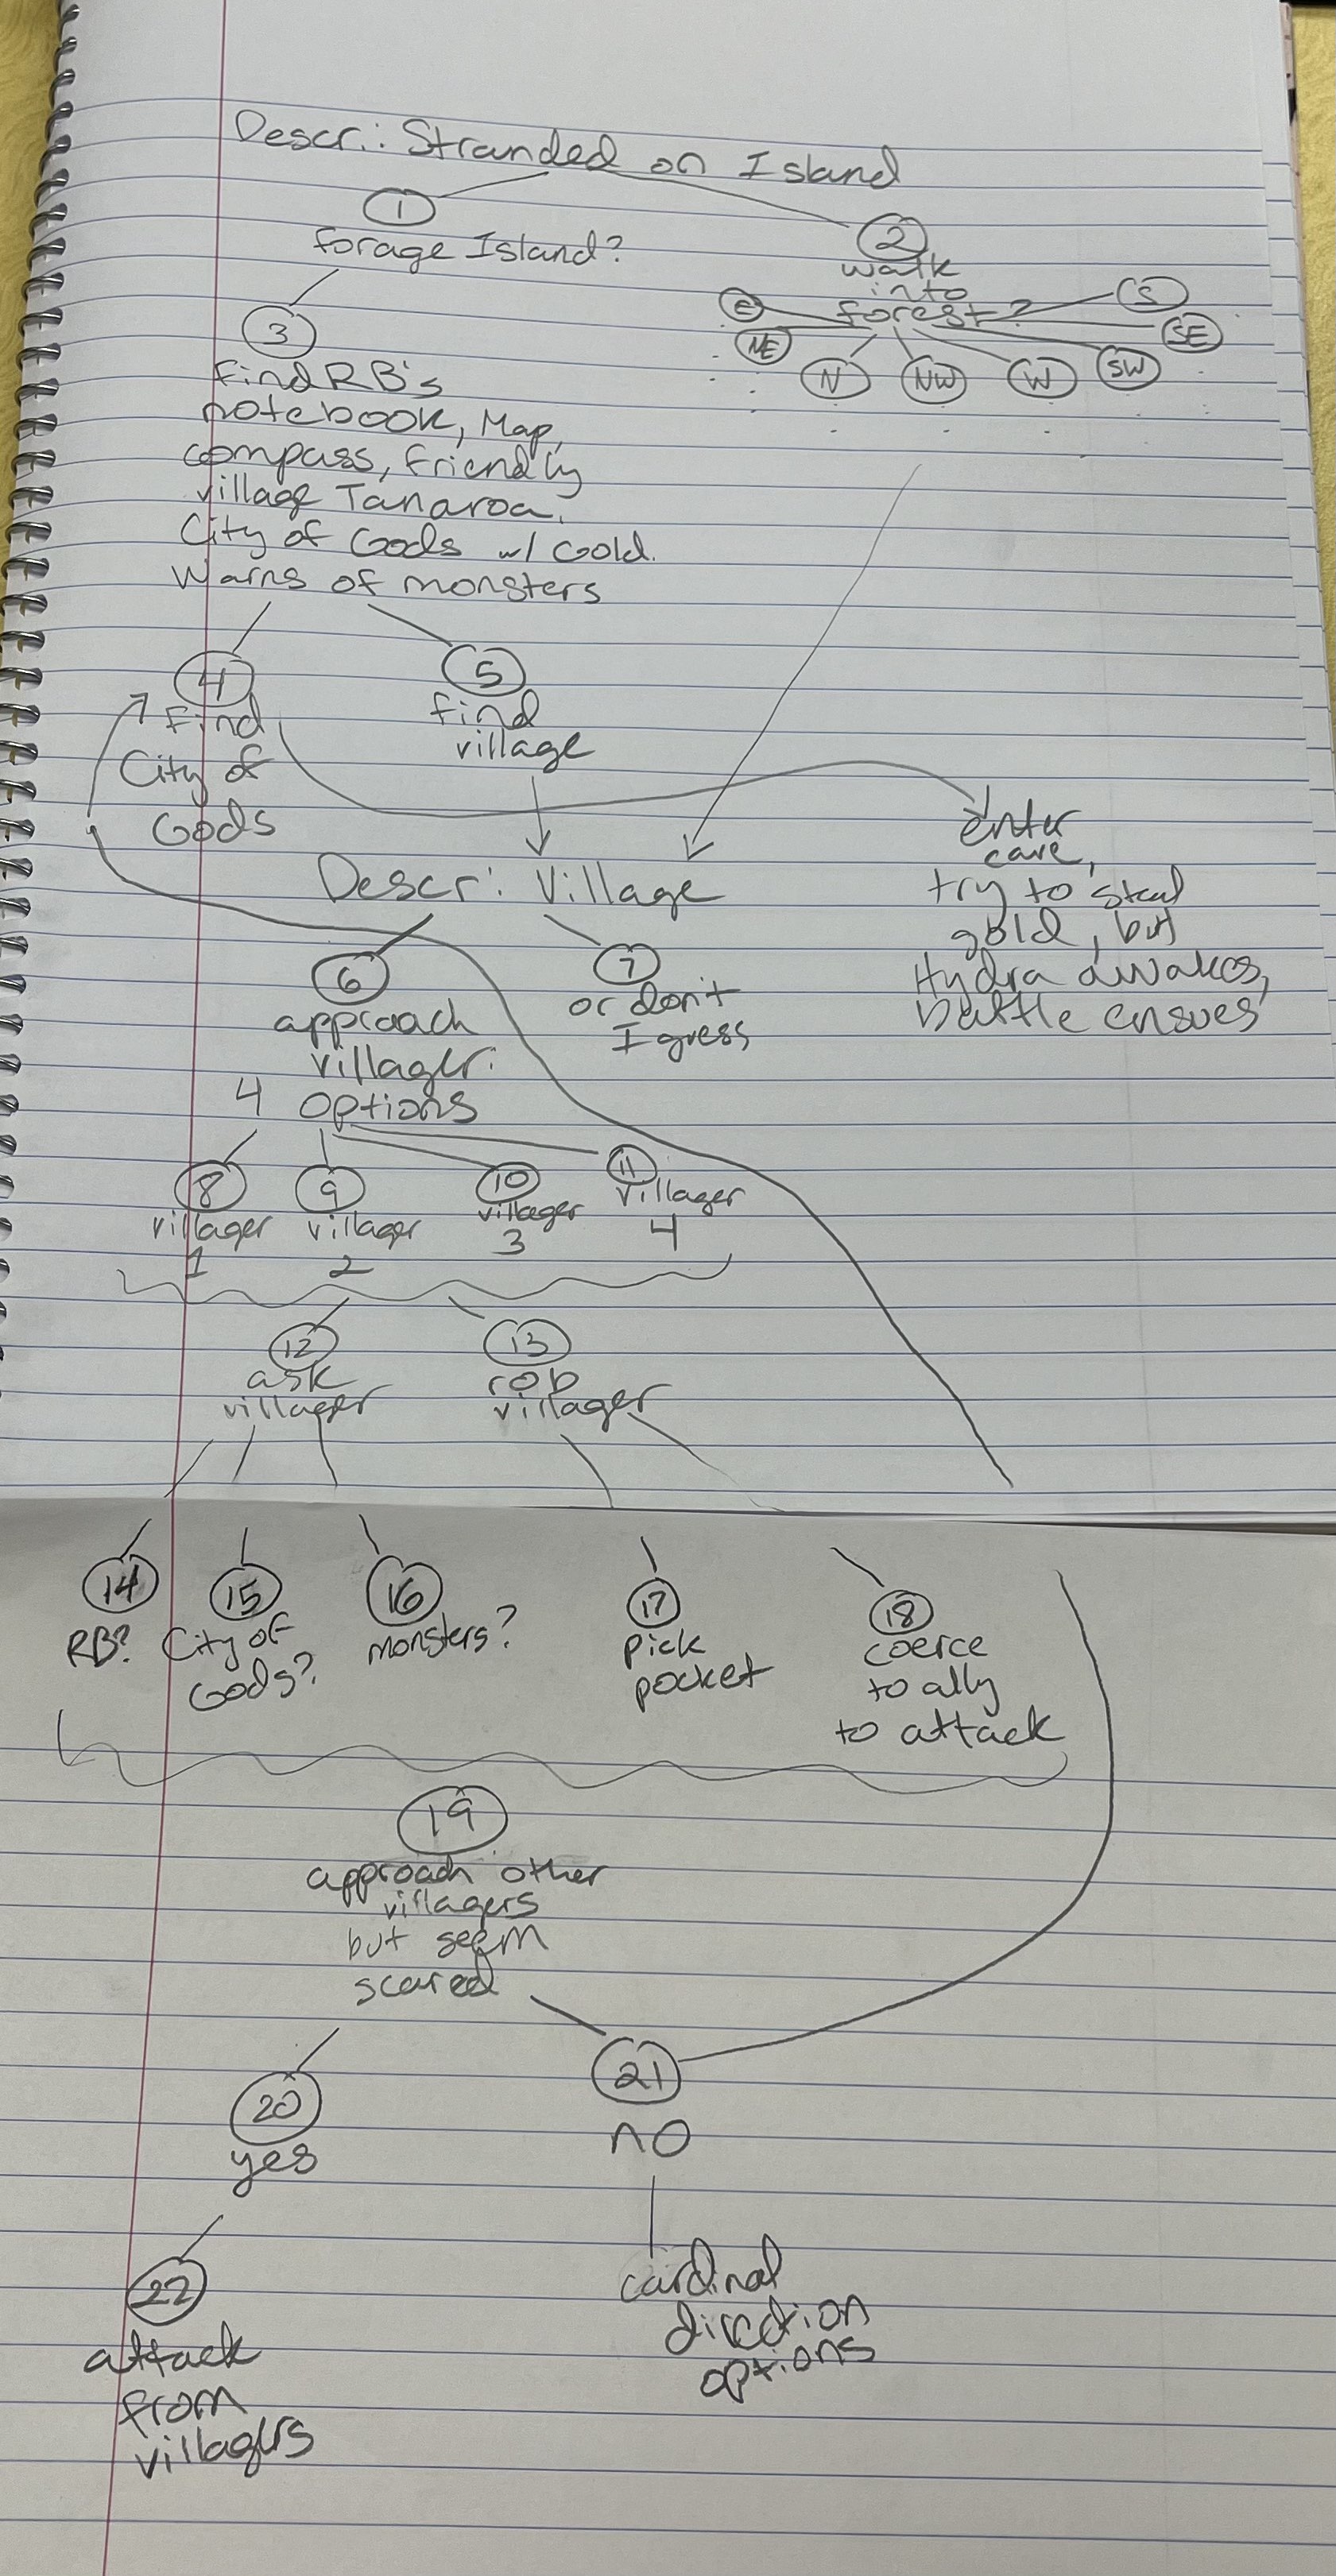 Descr.: Stranded on Island
1
forage Island?
2
walk
into
forest?
E
S
NE
SE
N
NW
W
SW
3
find RB's
notebook, Map,
compass, friendly
village Tanaroa.
City of Gods w/ Gold.
Warns of monsters
4
find
City of
Gods
5
find
village
enter
cave,
try to steal
gold, but
Hydra awakes,
battle ensues
Descr: Village
6
approach
villager:
4 options
7
or don't
I guess
8
villager
1
9
villager
2
10
villager
3
11
villager
4
12
ask
villager
13
rob
villager
14
RB?
15
City of
Gods?
16
monsters?
17
pick
pocket
18
coerce
to ally
to attack
19
approach other
villagers
but seem
scared
20
yes
21
no
22
attack
from
villagers
cardinal
direction
options